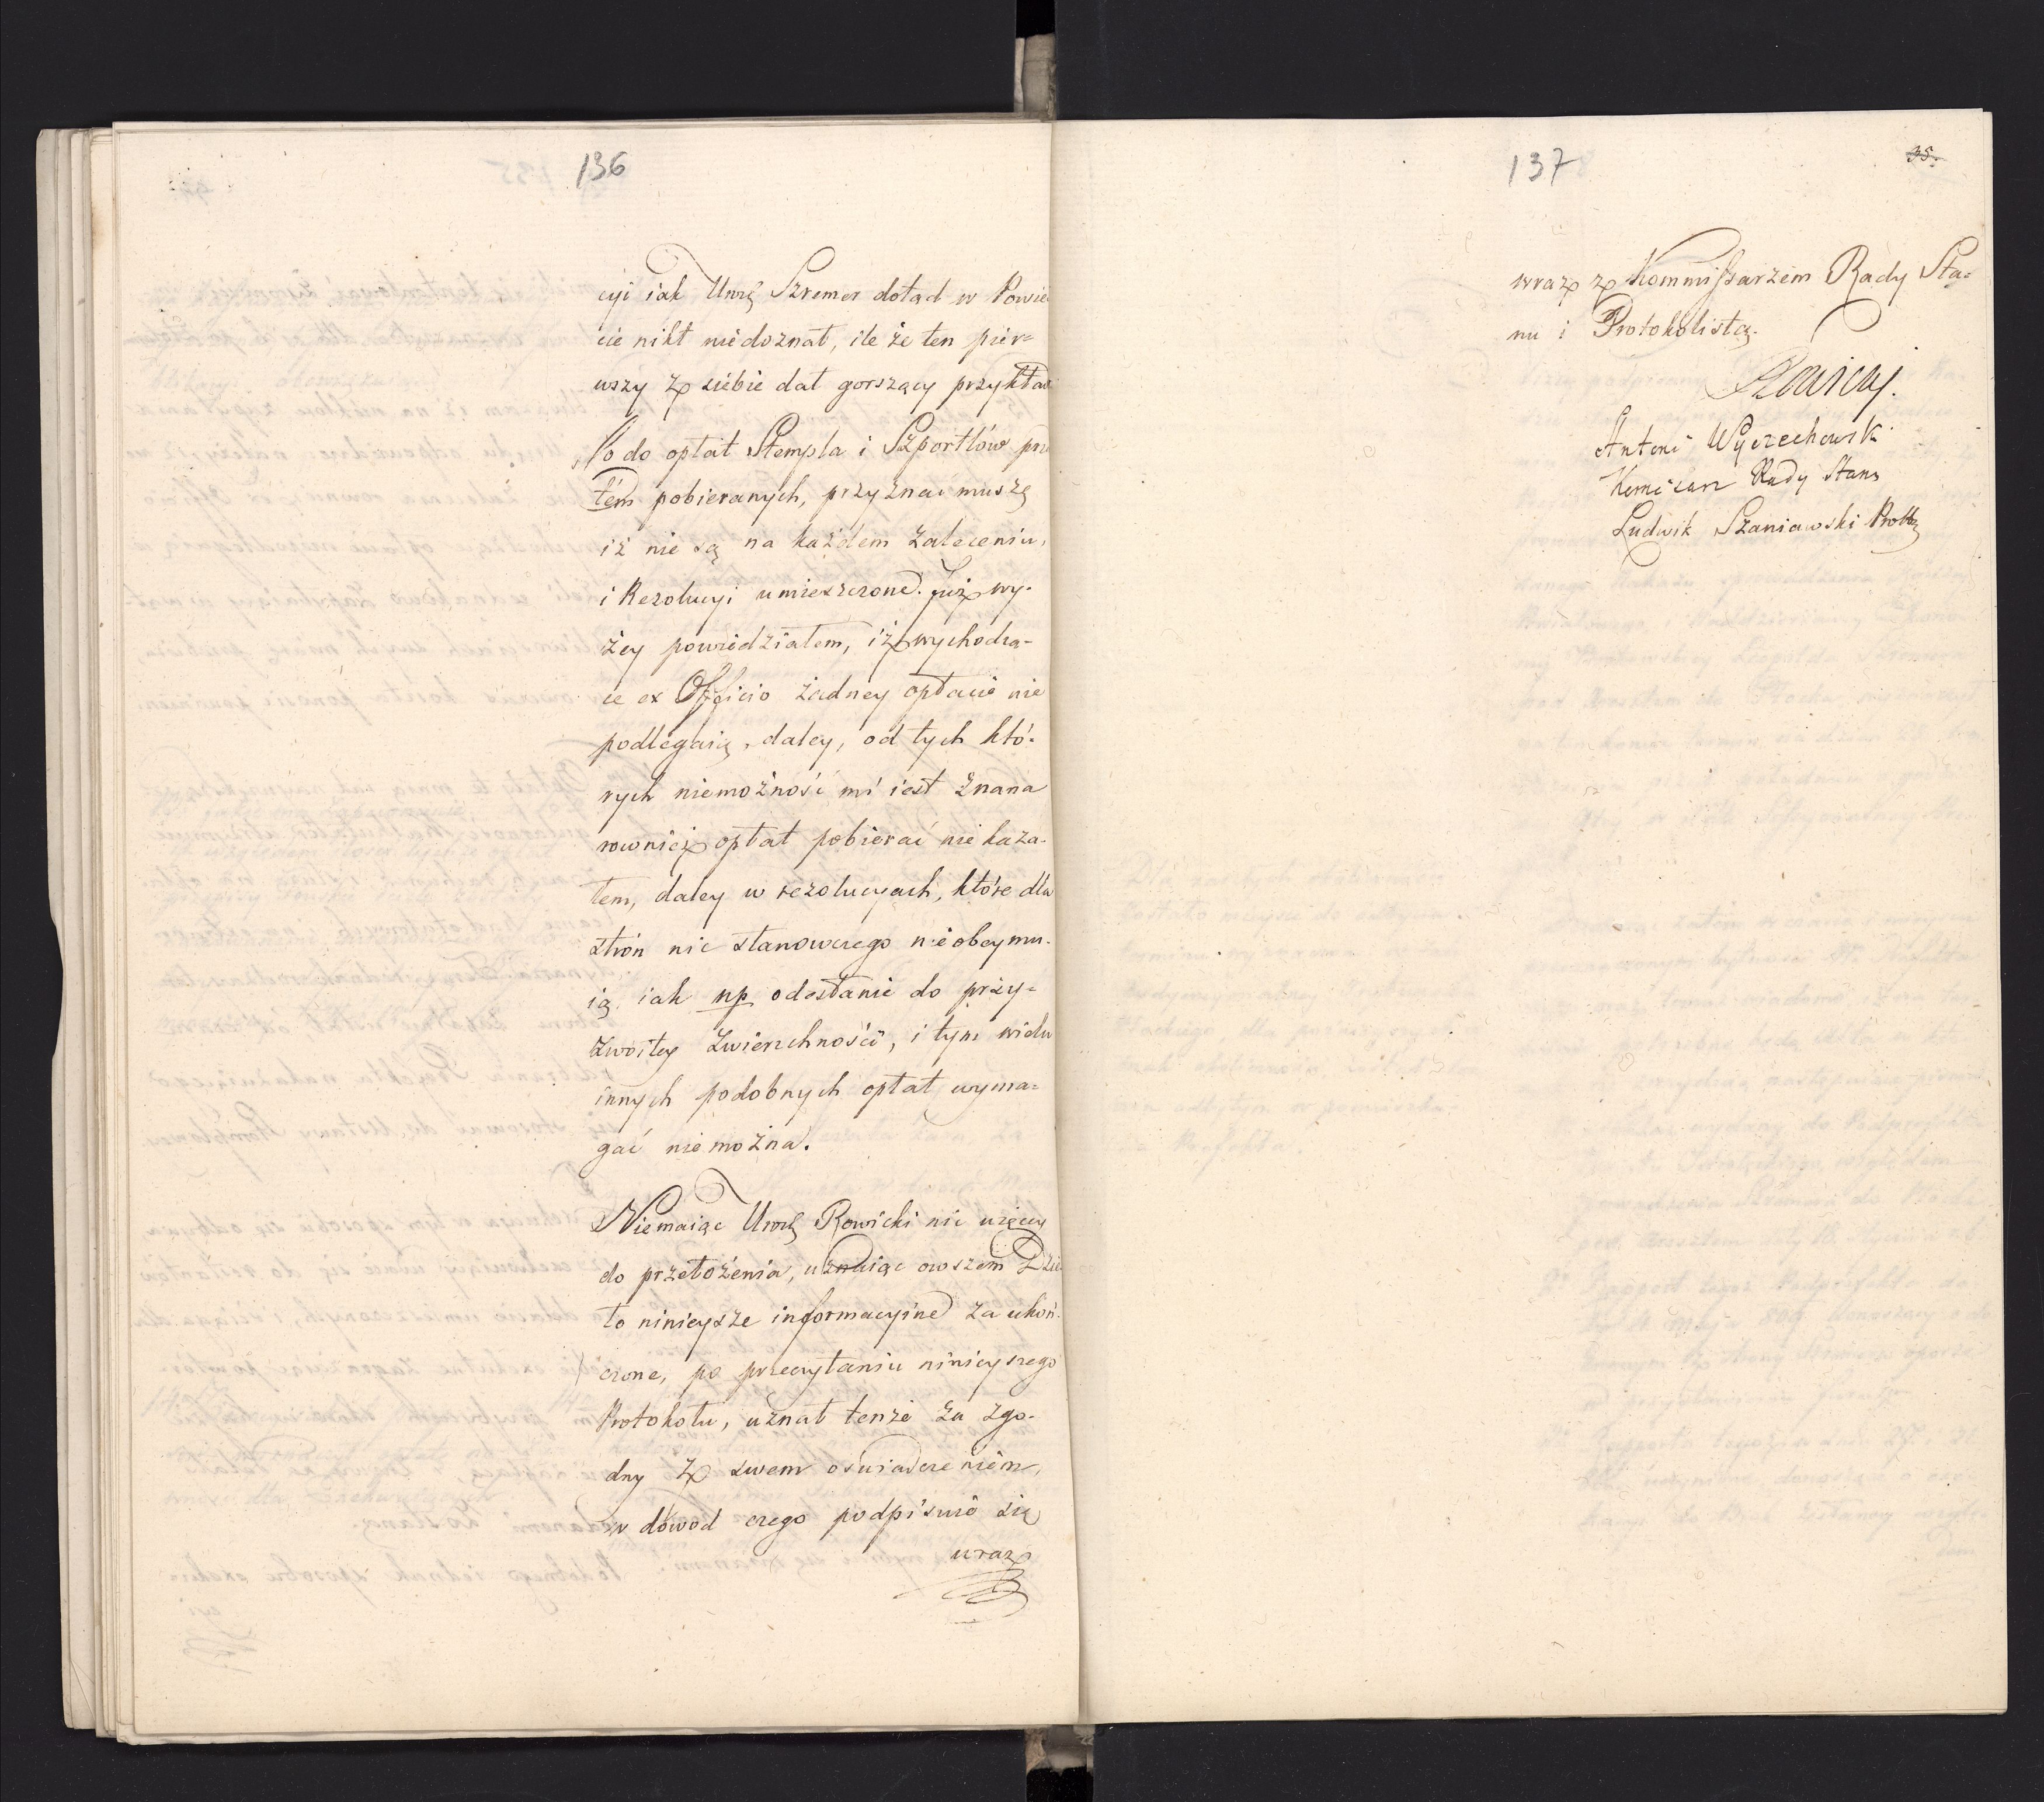 136
cyi iak Urodz Szremer dotąd w Powie
cie nikt niedoznał, ile że ten pier=
wszy z siebie dał gorszący przykład
Co do opłat Stempla i Szportlów prze
tém pobieranych, przyznać muszę
iż nie są na każdem zaleceniu,
i Rezolucyi umieszczone. Już wy-
żey powiedziałem, iż wychodzą-
ce ex Officio żadney opłacie nie
podlegaią, daley, od tych któ-
rych niemożność mi iest znana
rownież opłat pobierać nie kaza-
łem, daley w rezolucyach, które dla
strón nic stanowczego nieobeymu-
ią, iak np odesłanie do przy=
zwoitey Zwierzchności, i tym wielu
innych podobnych opłat wyma=
gać niemożna.
Niemaiąc Urodz Rowicki nic więcey
do przełożenia, uznaiąc owszem Dzie
ło ninieysze informacyine za ukoń-
czone, po przeczytaniu ninieyszego
Protokołu, uznał tenże za zgo-
dny z swem oświadczeniem,
w dowod czego podpisuie się
wraz
137
35.
wraz z Kommissarzem Rady Sta=
nu i Protokolistą.
Rowicki.
Antoni Wyczechowski
Komisarz Rady Stanu
Ludwik Szaniawski Prottа